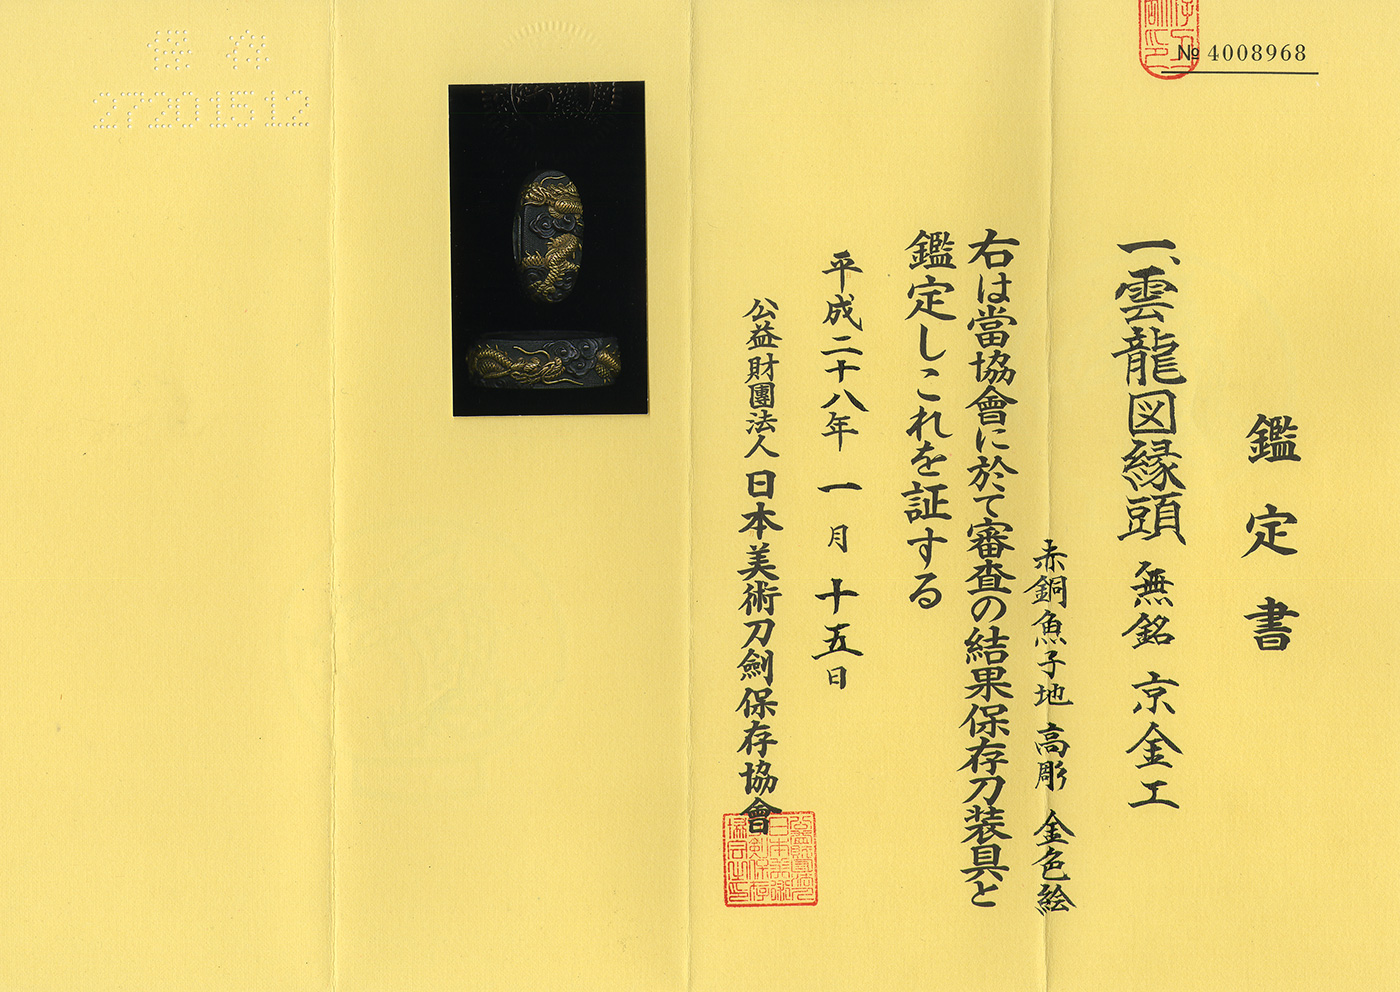 № 4008968
鑑定書
一、雲龍図縁頭 無銘 京金工
赤銅魚子地 高彫 金色絵
右は當協會に於て審査の結果保存刀装具と
鑑定しこれを証する
平成二十八年 一月 十五日
公益財團法人 日本美術刀劍保存協會
保存
27201512